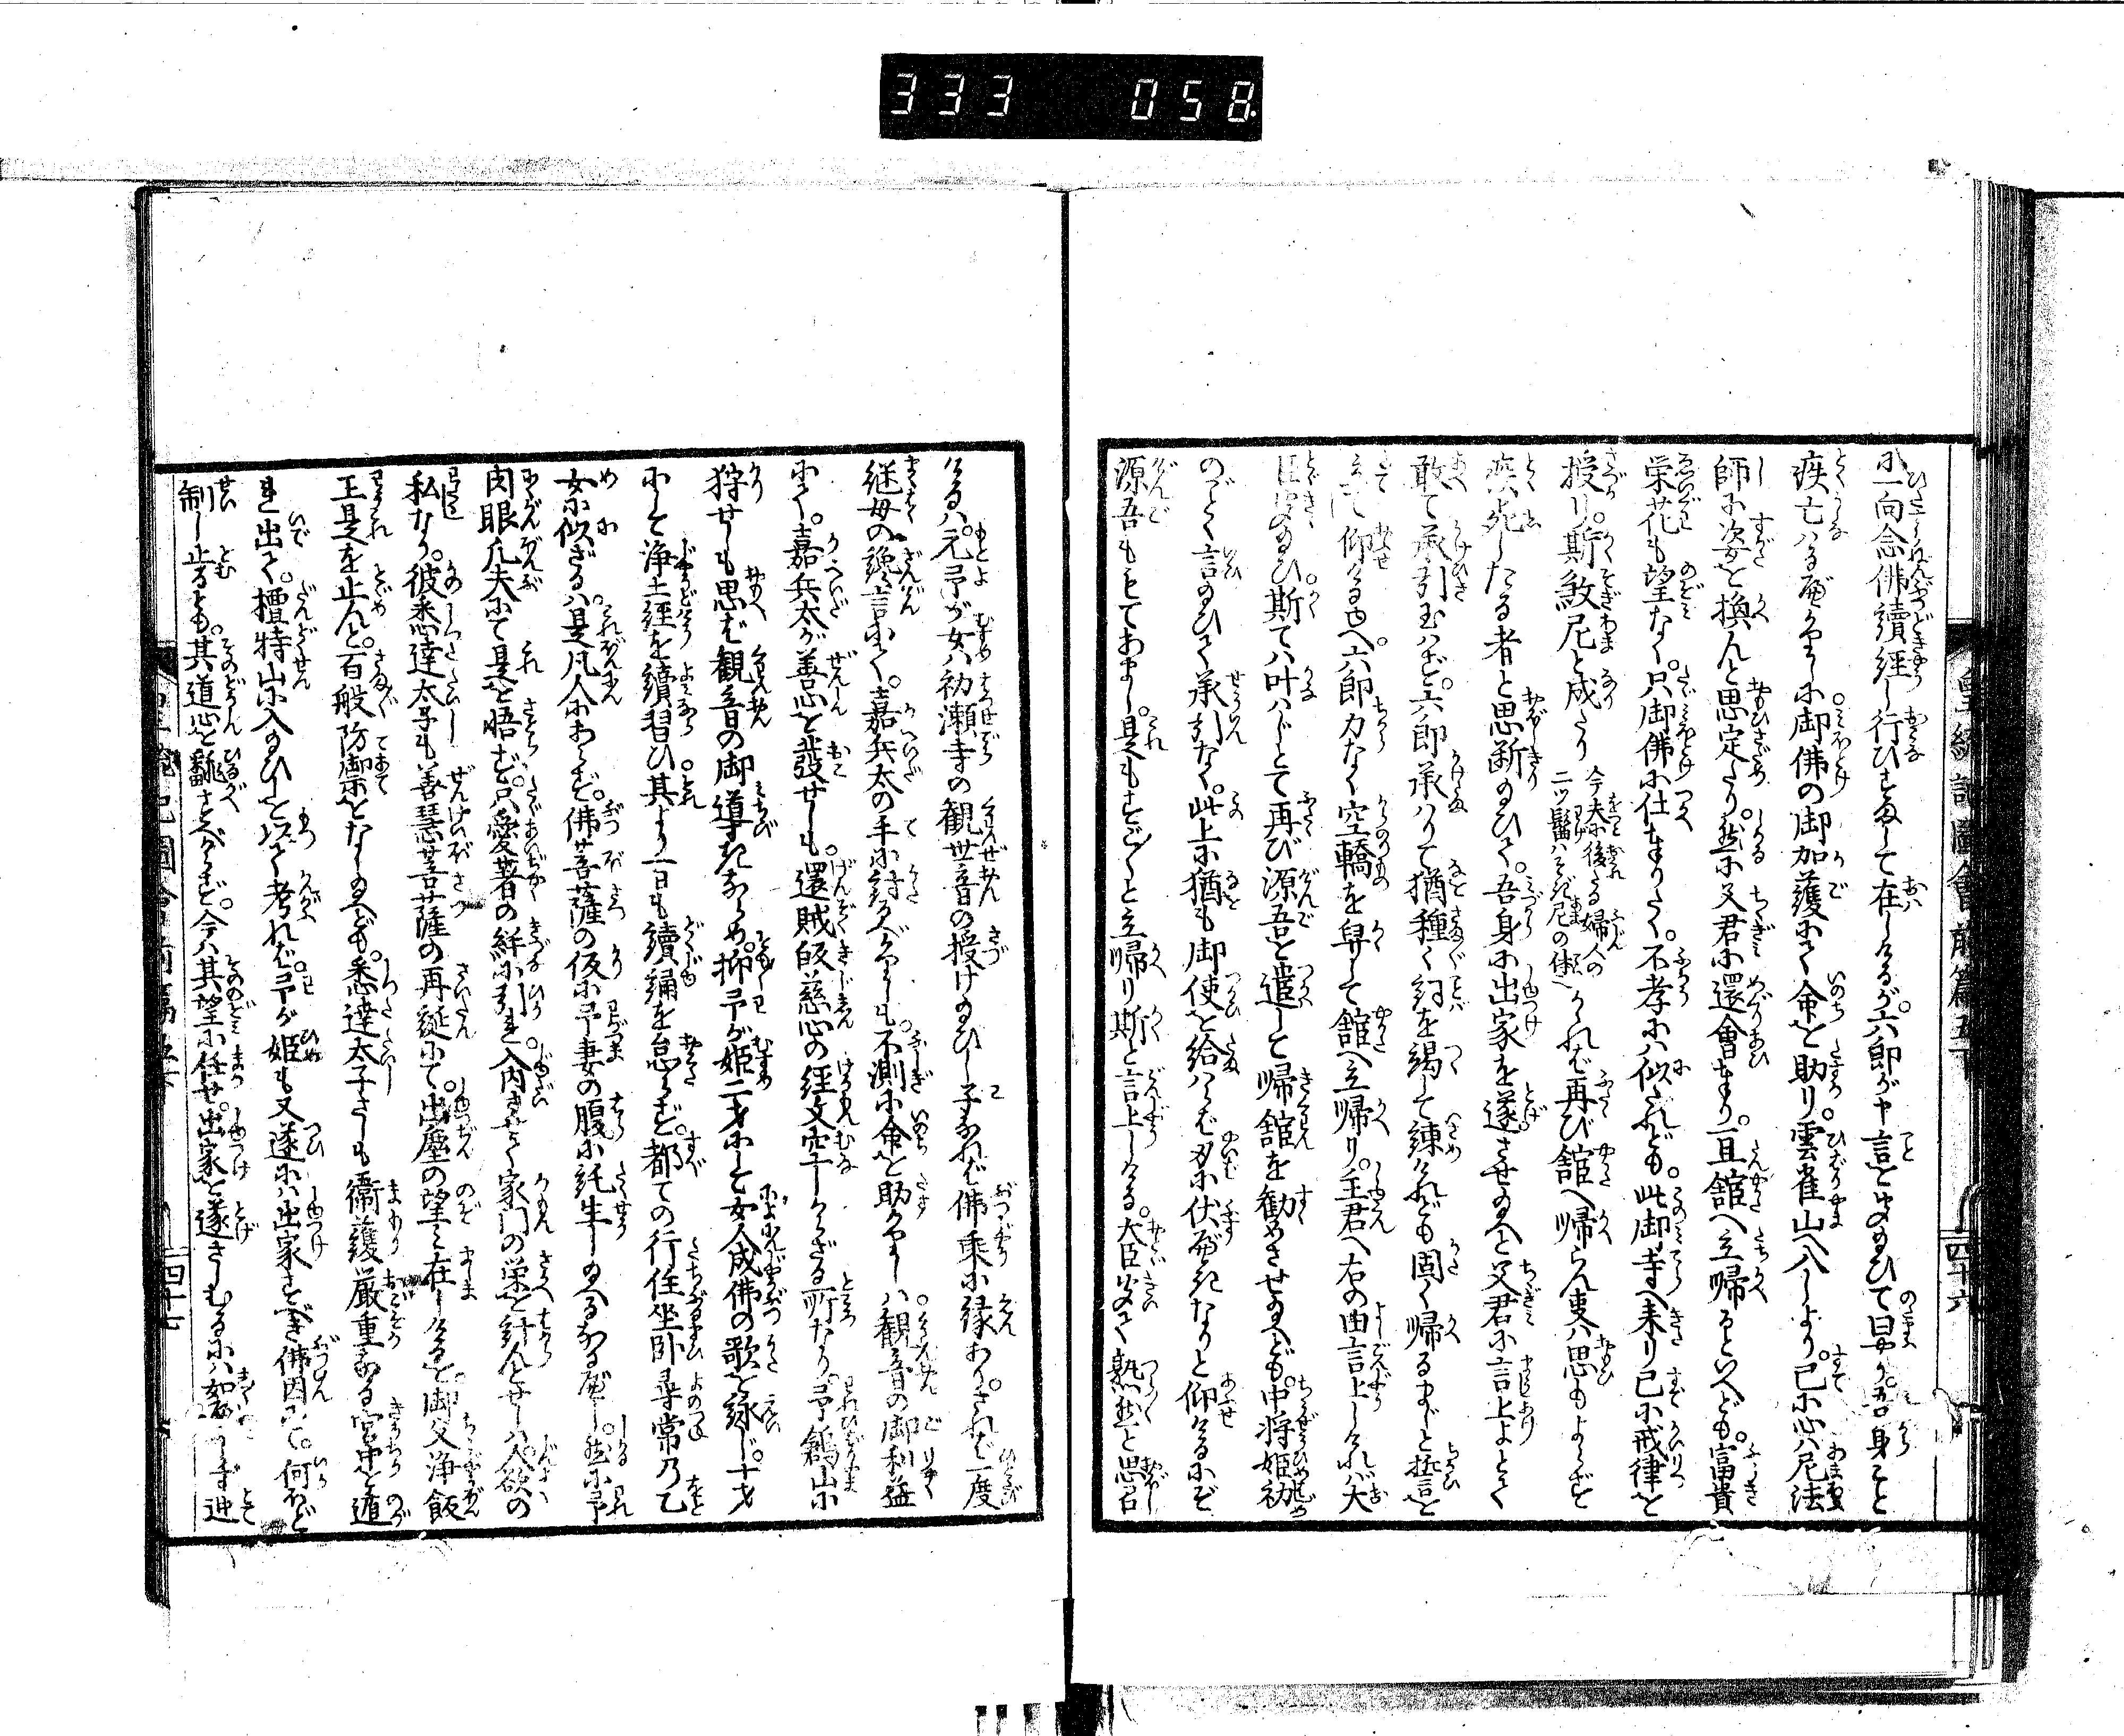 333 058
に一向念佛續經し行ひすまして在しけるが。六郎が申言を聞給ひて曰やう。吾身こと
疾亡ハる可かりしに御佛の御加護にて命を助り。雲雀山へ入しより。已に心ハ尼法
師に姿を換んと思定たり。然に父君に還會まゐり。一旦舘へ立帰るといへども。富貴
栄花も望なく。只御佛に仕まりたく。不孝にハ似たれども。此御寺へ来り已に戒律を
授り。斯敎尼と成たり
今夫に後たる婦人の
二ツ髷ハそぎ尼の体也
かれば再び舘へ帰らん事ハ思もよらず
疾死したる者と思断給ひて。吾身に出家を遂させ給へと父君に言上よとて
敢て承引玉ハず。六郎承ハりて猶種々詞を竭して練けれども固く帰るまじと拒言を
立て仰けるゆへ。六郎力なく空轎を舁して舘へ立帰り。主君へ右の由言上しけれバ大
臣聞給ひ斯てハ叶ハじとて再び源吾を遣して帰舘を勧めさせ給へども。中将姫初
のごとく言給ひて承引なく。此上に猶も御使を給ハらば刃に伏可きなりと仰けるにぞ
源吾ももてあまし是もすご〳〵と立帰り斯と言上しける。大臣聞て熟然と思召
けるハ。元予が女ハ初瀬寺の観世音の授け給ひし子なれば佛乗に縁あり。されば一度
継母の讒言にて。嘉兵太の手に掛るべかりしも不測に命を助かりしハ観音の御利益
にて。嘉兵太が善心を發せしも。還賊皈慈心の経文空しからざる所なり。予鶴山に
狩せしも思へば観音の御導きならめ。抑予が姫二才にして女人成佛の歌を詠じ。十才
にして浄土経を續習ひ其より一日も讀誦を怠らず。都ての行住坐卧尋常乃乙
女に似ざるハ。是凡人にあらず。佛菩薩の仮に予妻の腹に託生し給へるなる可し。然に予
肉眼凡夫にて是を悟ず。只愛著の絆に引れ入内させて家門の栄を計んとせしハ人欲の
私なり。彼悉達太子も善慧菩薩の再誕にて。出塵の望ミ在しけるを。御父浄飯
王是を止んと。百般防禦をなし給へども。悉達太子さしも衞護厳重なる宮中を遁
れ出て。檀特山に入給ひしを以て考れば。予が姫も又遂にハ出家すべき佛因にて。何ほど
制し止るとも。其道心を飜すべからず。今ハ其望に任せ。出家を遂さしむるにハ如じ
四十六
四十七